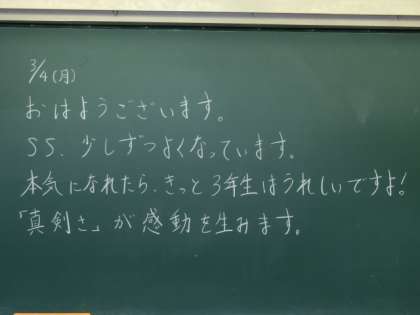 3/4(月)
おはようございます。
SS、少しずつよくなっています。
本気になれたら、きっと3年生はうれしいですよ!
「真剣さ」が感動を生みます。